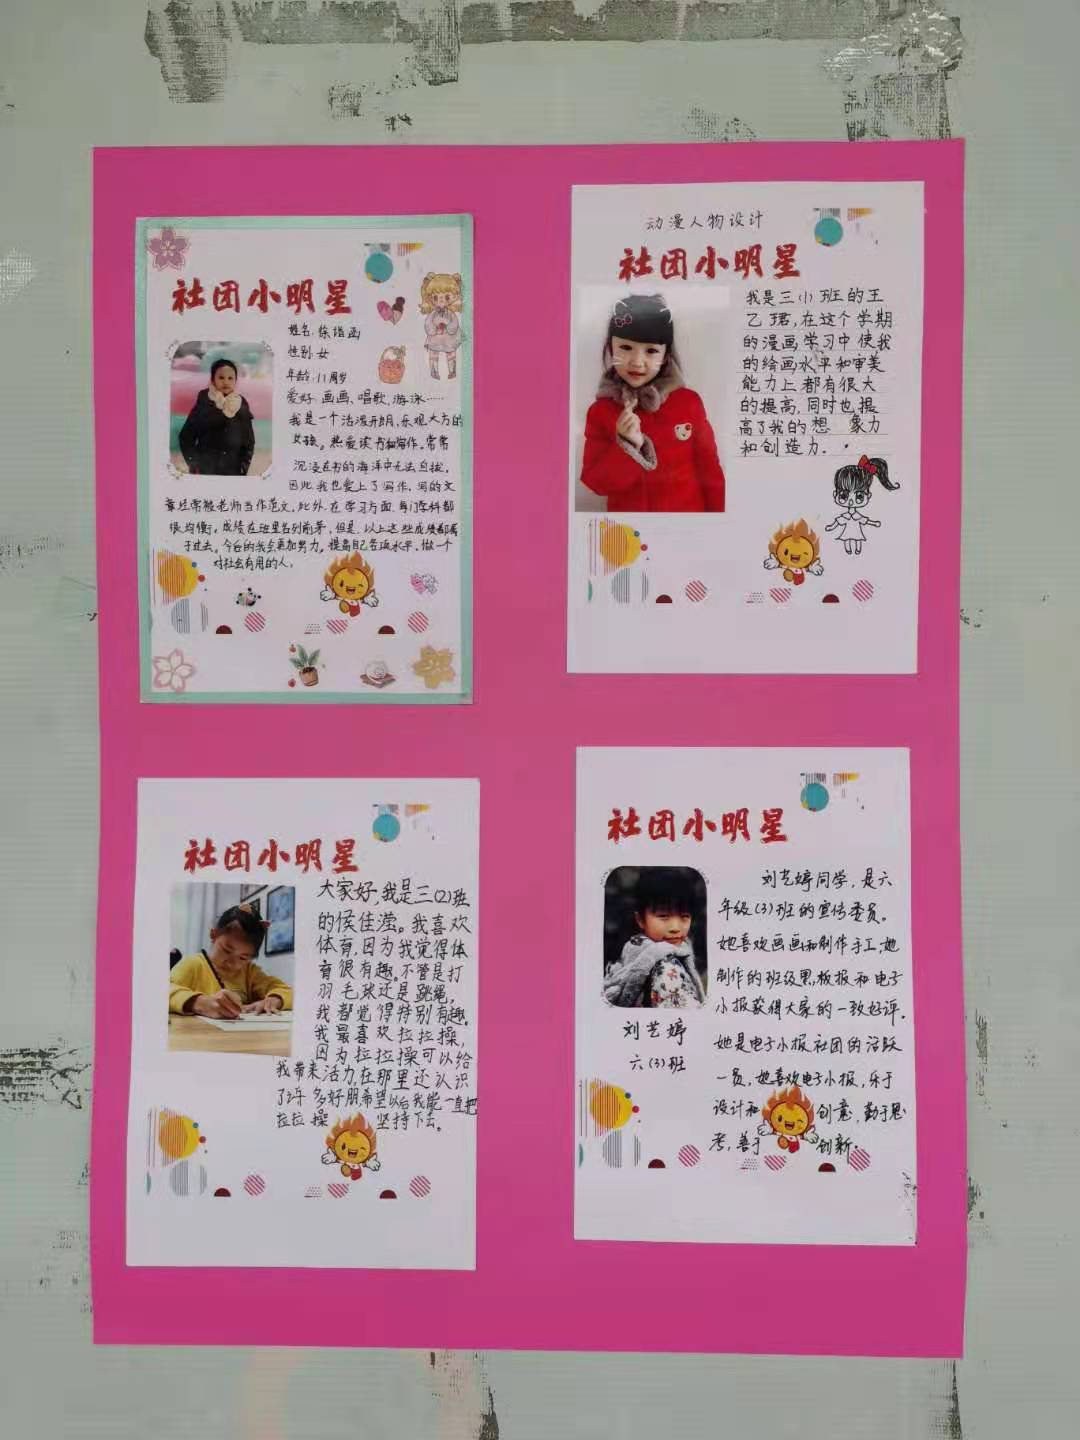 社团小明星
姓名:徐诺函
性别:女
年龄:11周岁
爱好:画画、唱歌、游泳……
我是一个活泼开朗,乐观大方的
女孩。热爱读书和写作。常常
沉浸在书的海洋中无法自拔,
因此,我也爱上了写作,写的文
章经常被老师当作范文,此外,在学习方面,每门学科都
很均衡,成绩在班里名列前茅,但是,以上这些成绩都属
于过去。今后的我会更加努力,提高自己各项水平,做一个
对社会有用的人。
动漫人物设计
社团小明星
我是三(1)班的王
乙珺,在这个学期
的漫画学习中使我
的绘画水平和审美
能力上都有很大
的提高,同时也提
高了我的想象力
和创造力.
社团小明星
大家好,我是三(2)班
的侯佳滢。我喜欢
体育,因为我觉得体
育很有趣。不管是打
羽毛球还是跳绳,
我都觉得特别有趣。
我最喜欢拉拉操,
因为拉拉操可以给
我带来活力,在那里还认识
了许多好朋希望以后我能一直把
拉拉操坚持下去。
社团小明星
刘艺婷同学,是六
年级(3)班的宣传委员。
她喜欢画画和制作手工,她
制作的班级黑板报和电子
小报获得大家的一致好评.
她是电子小报社团的活跃
一员,她喜欢电子小报,乐于
设计和创意,勤于思
考,善于创新.
刘艺婷
六(3)班